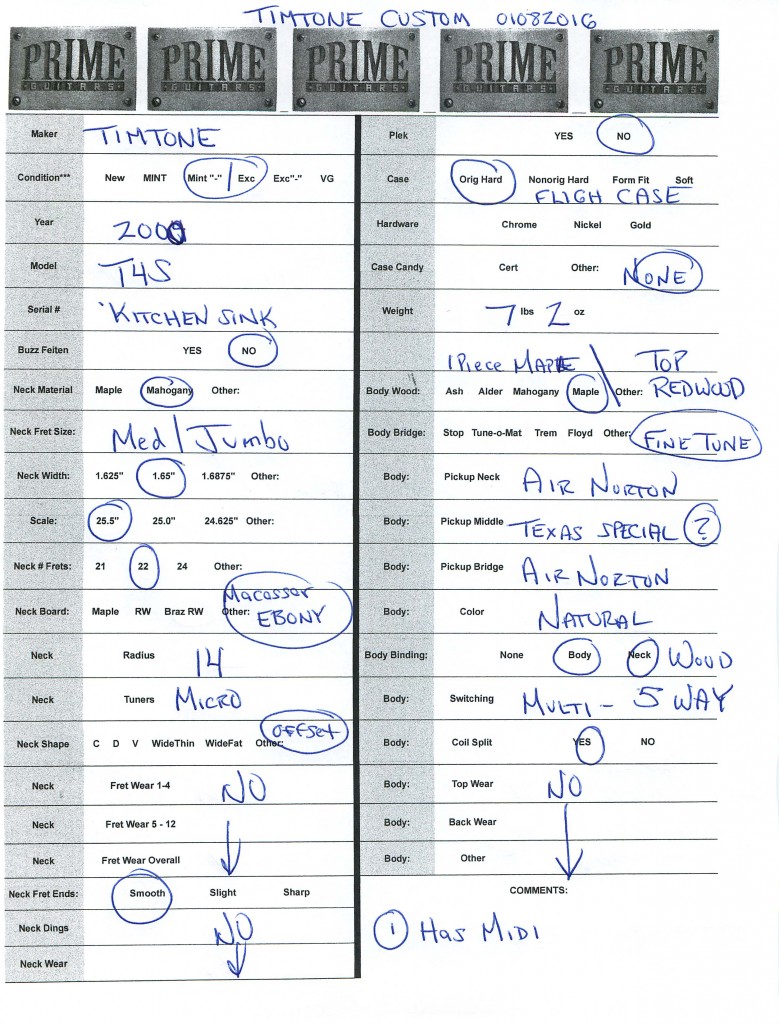 TIMTONE CUSTOM 01082016
PRIME PRIME PRIME PRIME PRIME
GUITARS GUITARS GUITARS GUITARS GUITARS
Maker TIMTONE
Condition*** New MINT Mint "-" | Exc Exc"-" VG
Year 2000
Model T4S
Serial # 'KITCHEN SINK
Buzz Feiten YES NO
Neck Material Maple Mahogany Other:
Neck Fret Size: Med / Jumbo
Neck Width: 1.625" 1.65" 1.6875" Other:
Scale: 25.5" 25.0" 24.625" Other:
Neck # Frets: 21 22 24 Other:
Neck Board: Maple RW Braz RW Other: Macassar
EBONY
Neck Radius 14
Neck Tuners MICRO
Neck Shape C D V WideThin WideFat Other: OFFSet
Neck Fret Wear 1-4 NO
Neck Fret Wear 5 - 12
Neck Fret Wear Overall
Neck Fret Ends: Smooth Slight Sharp
Neck Dings NO
Neck Wear
Plek YES NO
Case Orig Hard Nonorig Hard Form Fit Soft
FLIGH CASE
Hardware Chrome Nickel Gold
Case Candy Cert Other: NONE
Weight 7 lbs 2 oz
1 Piece MAPLE \ TOP
Body Wood: Ash Alder Mahogany Maple Other: REDWOOD
Body Bridge: Stop Tune-o-Mat Trem Floyd Other: FINE TUNE
Body: Pickup Neck AIR NORTON
Body: Pickup Middle TEXAS SPECIAL ?
Body: Pickup Bridge AIR NORTON
Body: Color NATURAL
Body Binding: None Body Neck WOOD
Body: Switching MULTI - 5 WAY
Body: Coil Split YES NO
Body: Top Wear NO
Body: Back Wear
Body: Other
COMMENTS:
1 Has MIDI